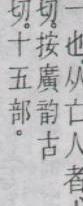 一也从亡人者
切按廣韵古
切十五部。